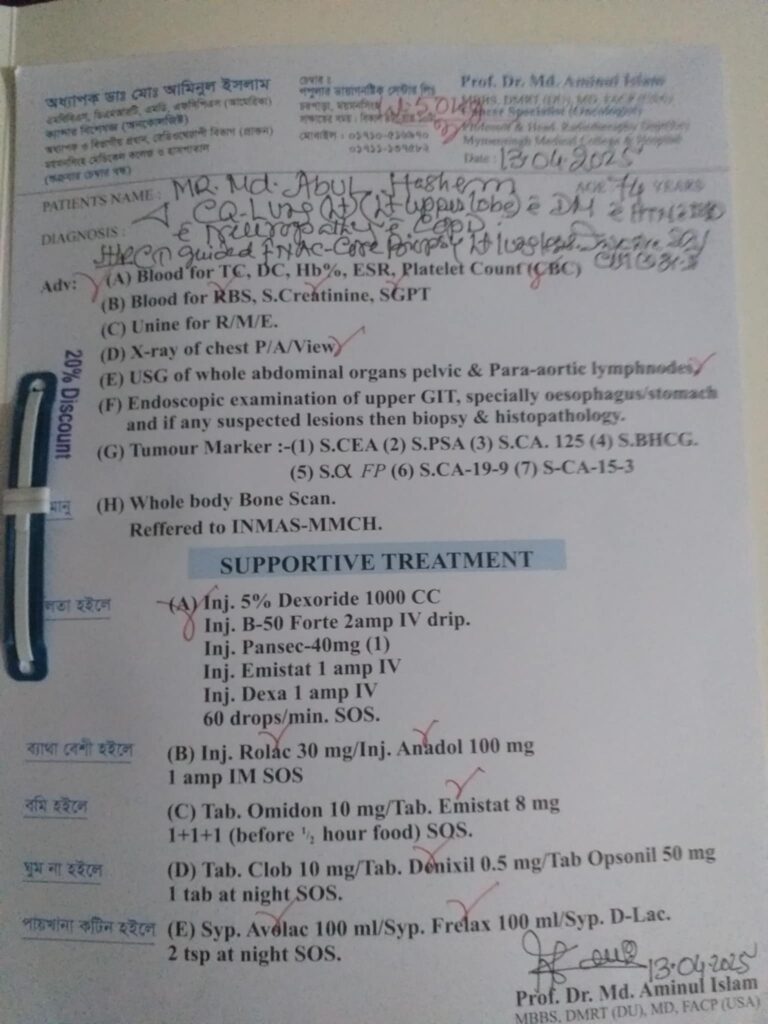 অধ্যাপক ডাঃ মোঃ আমিনুল ইসলাম
এমবিবিএস, ডিএমআরটি, এমডি, এফসিপিএস (আমেরিকা)
ক্যান্সার বিশেষজ্ঞ (অনকোলজিষ্ট)
অধ্যাপক ও বিভাগীয় প্রধান, রেডিওথেরাপী বিভাগ (প্রাক্তন)
ময়মনসিংহ মেডিকেল কলেজ ও হাসপাতাল
(শুক্রবার চেম্বার বন্ধ)
চেম্বার :
পপুলার ডায়াগনষ্টিক সেন্টার লিঃ
চরপাড়া, ময়মনসিংহ
মোবাইল :
Prof. Dr. Md. Aminul Islam
MBBS, DMRT (DU), MD, FACP (USA)
Cancer Specialist (Oncologist)
Professor & Head, Radiotherapy
Mymensingh Medical College & Hospital
Date : 13.04.2025
PATIENTS NAME : MR. Md. Abul Hashem AGE 74 YEARS
DIAGNOSIS : CA-Lung (Lt) (Lt upper lobe) c̄ DM c̄ HTN
c̄ Neuropathy c̄ COPD
guided FNAC-Core Biopsy Lt lung
Adv: (A) Blood for TC, DC, Hb%, ESR, Platelet Count (CBC)
(B) Blood for RBS, S.Creatinine, SGPT
(C) Unine for R/M/E.
(D) X-ray of chest P/A/View
(E) USG of whole abdominal organs pelvic & Para-aortic lymphnodes,
(F) Endoscopic examination of upper GIT, specially oesophagus/stomach
and if any suspected lesions then biopsy & histopathology.
20% Discount
(G) Tumour Marker :-(1) S.CEA (2) S.PSA (3) S.CA. 125 (4) S.BHCG.
(5) S.α FP (6) S.CA-19-9 (7) S-CA-15-3
(H) Whole body Bone Scan.
Reffered to INMAS-MMCH.
SUPPORTIVE TREATMENT
হইলে (A) Inj. 5% Dexoride 1000 CC
Inj. B-50 Forte 2amp IV drip.
Inj. Pansec-40mg (1)
Inj. Emistat 1 amp IV
Inj. Dexa 1 amp IV
60 drops/min. SOS.
ব্যাথা বেশী হইলে (B) Inj. Rolac 30 mg/Inj. Anadol 100 mg
1 amp IM SOS
বমি হইলে (C) Tab. Omidon 10 mg/Tab. Emistat 8 mg
1+1+1 (before ½ hour food) SOS.
ঘুম না হইলে (D) Tab. Clob 10 mg/Tab. Denixil 0.5 mg/Tab Opsonil 50 mg
1 tab at night SOS.
পায়খানা কঠিন হইলে (E) Syp. Avolac 100 ml/Syp. Frelax 100 ml/Syp. D-Lac.
2 tsp at night SOS.
13.04.2025
Prof. Dr. Md. Aminul Islam
MBBS, DMRT (DU), MD, FACP (USA)